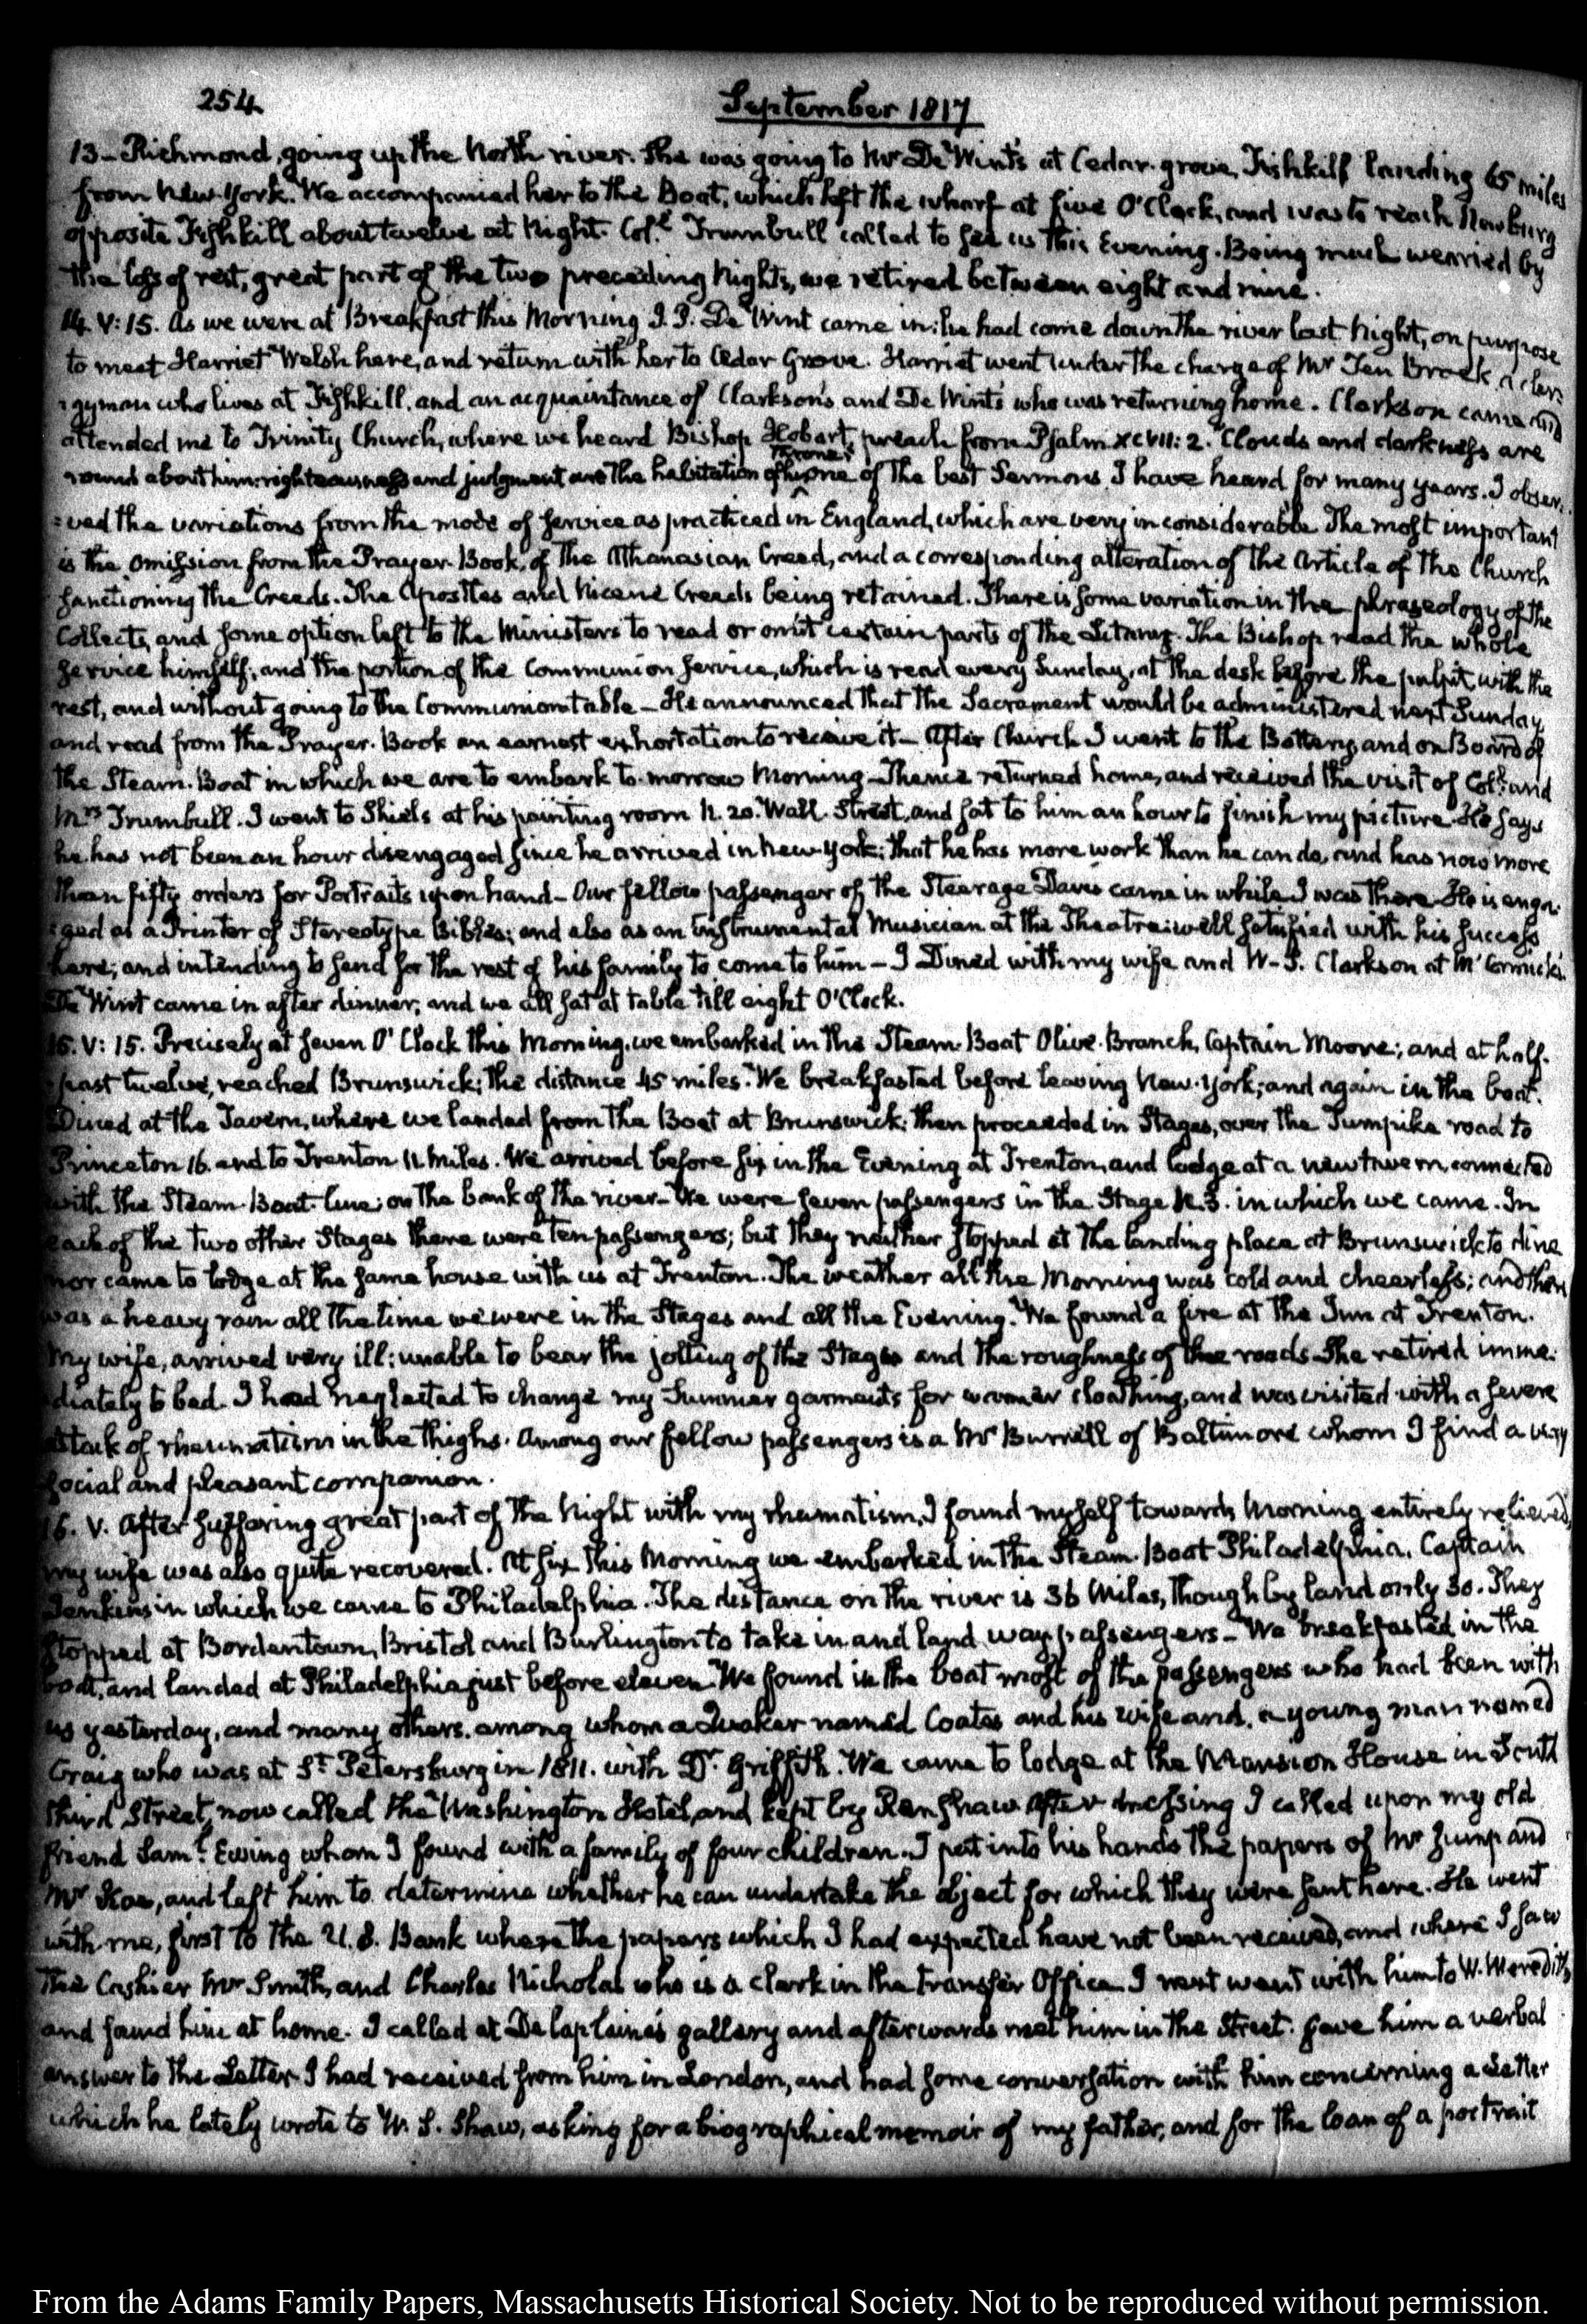 254
September 1817
13 – Richmond, going up the North river. She was going to Mr De Wint's at Cedar-grove, Fishkill landing 65 miles
from New-York. We accompanied her to the Boat, which left the wharf at five O'Clock, and was to reach Newburg
opposite Fishkill about twelve at Night. Coll. Trumbull called to see us this Evening. Being much wearied by
the loss of rest, great part of the two preceding Nights, we retired between eight and nine.
14. V: 15. As we were at Breakfast this Morning J. P. De Wint came in: he had come down the river last Night, on purpose
to meet Harriet Welsh here, and return with her to Cedar Grove. Harriet went under the charge of Mr Ten Broek a cler-
-gyman who lives at Fishkill, and an acquaintance of Clarkson's and De Wint's who was returning home. Clarkson came and
attended me to Trinity Church, where we heard Bishop Hobart, preach from Psalm XCVII: 2. Clouds and darkness are
round about him: righteousness and judgment are the habitation of his throne, one of the best Sermons I have heard for many years. I obser-
-ved the variations from the mode of service as practiced in England, which are very inconsiderable. The most important
is the omission from the Prayer-Book, of the Athanasian Creed, and a corresponding alteration of the Article of the Church
sanctioning the Creeds. The Apostles and Nicene Creeds being retained. There is some variation in the phraseology of the
Collects, and some option left to the Ministers to read or omit certain parts of the Litany. The Bishop read the whole
service himself, and the portion of the Communion service, which is read every Sunday, at the desk before the pulpit with the
rest, and without going to the Communion table – He announced that the Sacrament would be administered next Sunday
and read from the Prayer-Book an earnest exhortation to receive it – After Church I went to the Battery, and on Board of
the Steam-Boat in which we are to embark to-morrow Morning – Thence returned home, and received the visit of Coll. and
Mrs Trumbull. I went to Shiels at his painting room N. 20. Wall-Street, and sat to him an hour to finish my picture. He says
he has not been an hour disengaged since he arrived in New-York: that he has more work than he can do, and has now more
than fifty orders for Portraits upon hand – Our fellow passenger of the Steerage Davis came in while I was there. He is enga-
-ged as a Printer of Stereotype Bibles; and also as an Instrumental Musician at the Theatre: well satisfied with his success
here; and intending to send for the rest of his family to come to him – I Dined with my wife and W. S. Clarkson at McCormick's
De Wint came in after dinner, and we all sat at table till eight O'Clock.
15. V: 15. Precisely at seven O'Clock this Morning, we embarked in the Steam-Boat Olive-Branch, Captain Moore; and at half-
-past twelve, reached Brunswick; the distance 45 miles. We breakfasted before leaving New-York; and again in the boat.
Dined at the Tavern, where we landed from the Boat at Brunswick; then proceeded in Stages, over the Turnpike road to
Princeton 16. and to Trenton 11 miles. We arrived before six in the Evening at Trenton, and lodge at a new tavern connected
with the Steam-Boat line; on the bank of the river – We were seven passengers in the Stage N. 3. in which we came. In
each of the two other Stages there were ten passengers; but they neither stopped at the landing place at Brunswick to dine
nor came to lodge at the same house with us at Trenton. The weather all the Morning was cold and cheerless; and there
was a heavy rain all the time we were in the Stages and all the Evening. We found a fire at the Inn at Trenton.
My wife, arrived very ill: unable to bear the jolting of the Stages and the roughness of the roads – She retired imme-
diately to bed. I had neglected to change my Summer garments for warmer cloathing, and was visited with a severe
attack of rheumatism in the thighs. Among our fellow passengers is a Mr Burrell of Baltimore whom I find a very
social and pleasant companion.
16. V. After suffering great part of the Night with my rhumatism, I found myself towards Morning entirely relieved,
my wife was also quite recovered. At six this Morning we embarked in the Steam-Boat Philadelphia, Captain
Jenkins in which we came to Philadelphia. The distance on the river is 36 Miles, though by land only 30. They
stopped at Bordentown, Bristol and Burlington to take in and land way passengers – We breakfasted in the
boat, and landed at Philadelphia just before eleven. We found in the boat most of the passengers who had been with
us yesterday, and many others, among whom a Quaker named Coates and his wife and, a young man named
Craig who was at St Petersburg in 1811. with Dr. Griffith. We came to lodge at the Mansion House in South
third Street, now called the Washington Hotel, and kept by Renshaw. After dressing I called upon my old
friend Saml. Ewing whom I found with a family of four children. I put into his hands the papers of Mr Jump and
Mr Koe, and left him to determine whether he can undertake the object for which they were sent here. He went
with me, first to the U.S. Bank where the papers which I had expected have not been received, and where I saw
the Cashier Mr Smith, and Charles Nicholas who is a clerk in the transfer Office. I next went with him to W. Meredith
and found him at home. I called at Delaplaine's gallery and afterwards met him in the Street. Gave him a verbal
answer to the Letter I had received from him in London, and had some conversation with him concerning a Letter
which he lately wrote to W. S. Shaw, asking for a biographical memoir of my father, and for the loan of a portrait
From the Adams Family Papers, Massachusetts Historical Society. Not to be reproduced without permission.